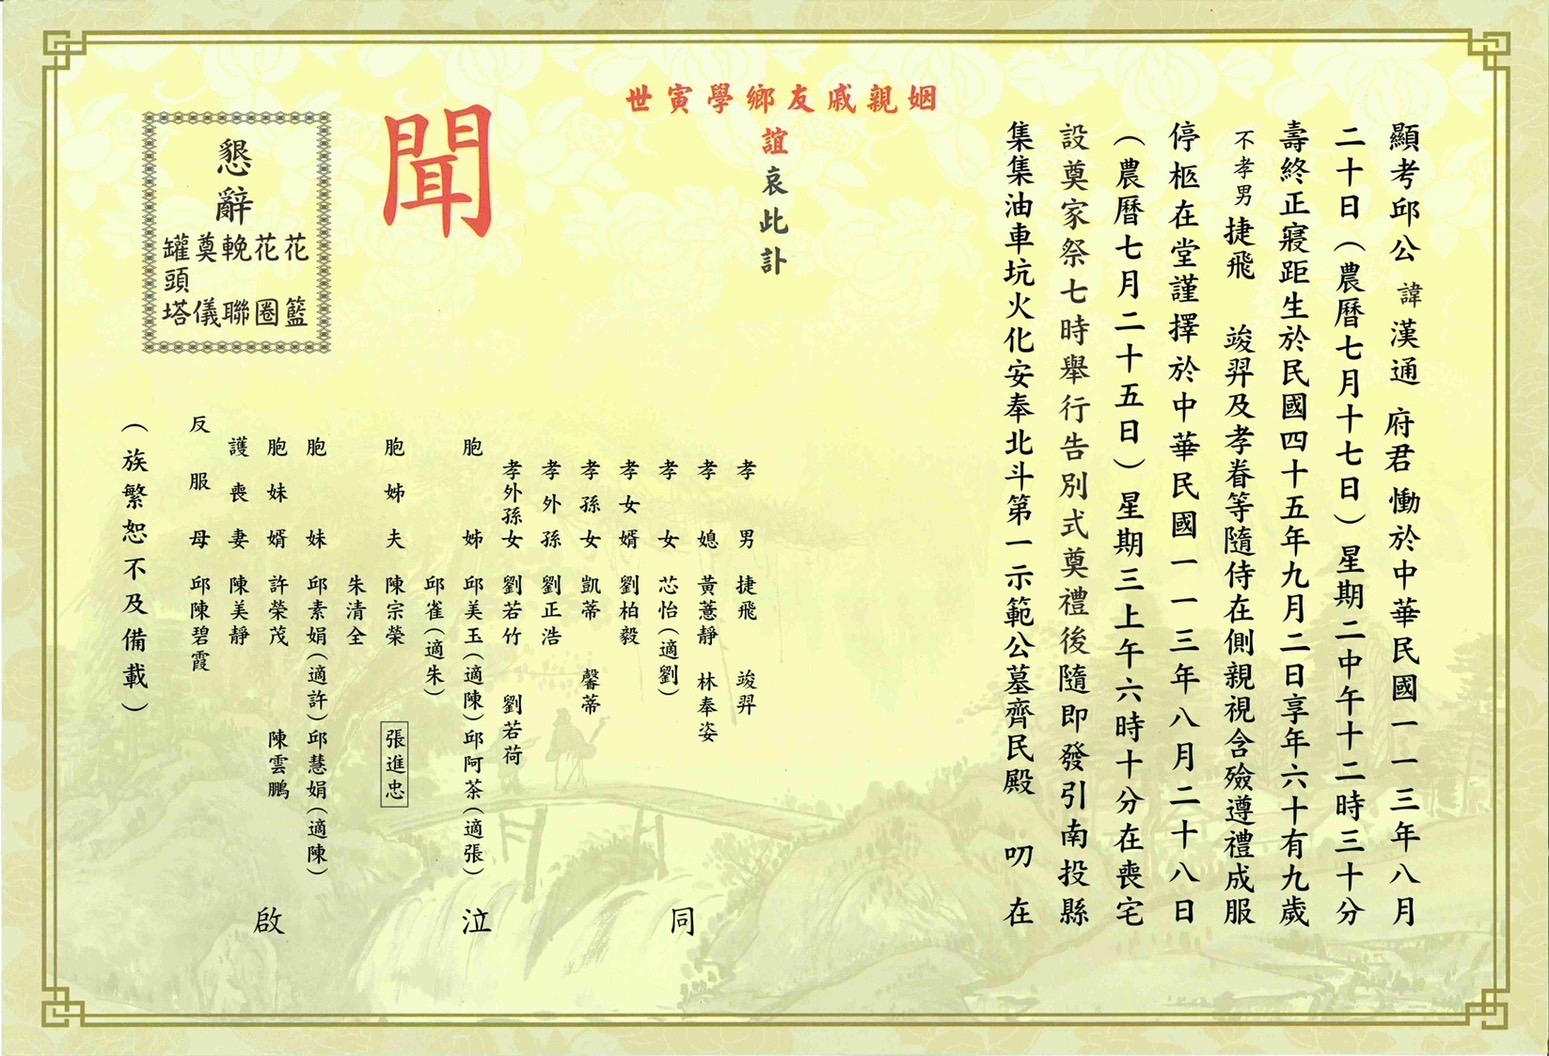 顯考邱公諱漢通府君慟於中華民國一一三年八月
二十日（農曆七月十七日）星期二中午十二時三十分
壽終正寢距生於民國四十五年九月二日享年六十有九歲
不孝男捷飛　竣羿及孝眷等隨侍在側親視含殮遵禮成服
停柩在堂謹擇於中華民國一一三年八月二十八日
（農曆七月二十五日）星期三上午六時十分在喪宅
設奠家祭七時舉行告別式奠禮後隨即發引南投縣
集集油車坑火化安奉北斗第一示範公墓齊民殿　叨在
姻親戚友鄉學寅世
誼哀此訃
聞
孝男　捷飛　竣羿
孝媳　黃薏靜　林奉姿
孝女　芯怡（適劉）
孝女婿　劉柏毅
孝孫女　凱蒂　馨蒂
孝外孫　劉正浩
孝外孫女　劉若竹　劉若荷
胞姊　邱美玉（適陳）邱阿茶（適張）
邱雀（適朱）
胞姊夫　陳宗榮　張進忠
朱清全
胞妹　邱素娟（適許）邱慧娟（適陳）
胞妹婿　許榮茂　陳雲鵬
護喪妻　陳美靜
反服母　邱陳碧霞
同泣啟
（族繁恕不及備載）
懇辭
花籃
花圈
輓聯
奠儀
罐頭塔